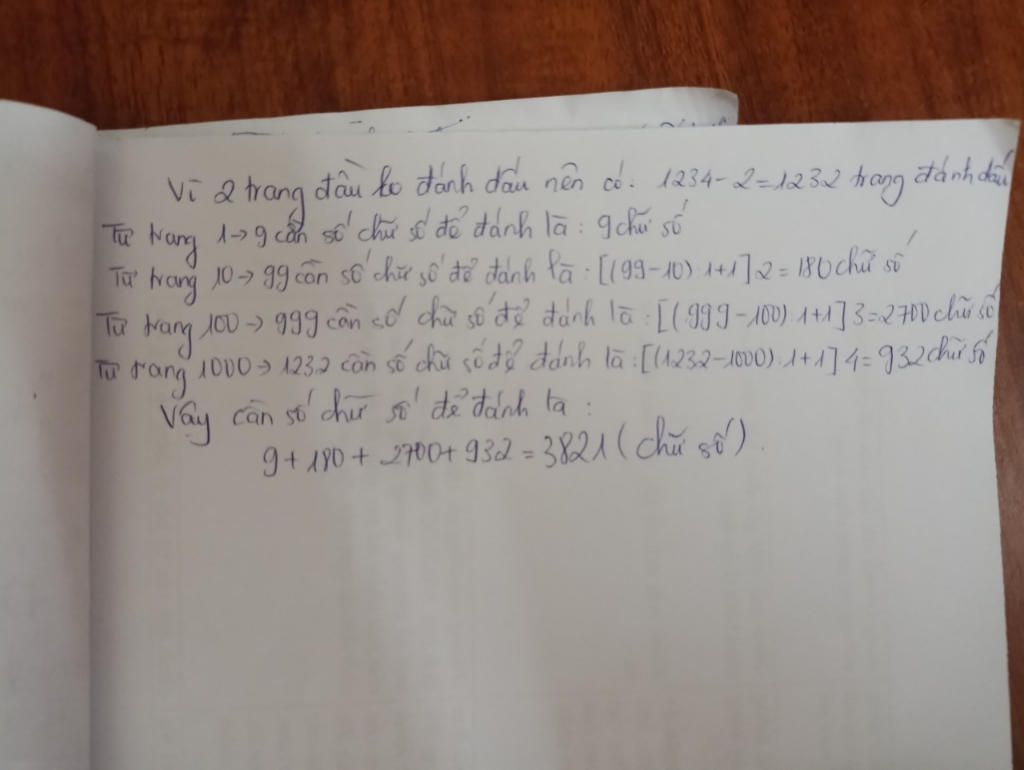 Vì 2 trang đầu ko đánh dấu nên có: 1234-2=1232 trang đánh dấu
Từ trang 1→9 cần số chữ số để đánh là: 9 chữ số
Từ trang 10→99 cần số chữ số để đánh là: [(99-10).1+1]2=180 chữ số
Từ trang 100→999 cần số chữ số để đánh là: [(999-100).1+1]3=2700 chữ số
Từ trang 1000→1232 cần số chữ số để đánh là: [(1232-1000).1+1]4=932 chữ số
Vậy cần số chữ số để đánh là:
9+180+2700+932=3821 (chữ số).